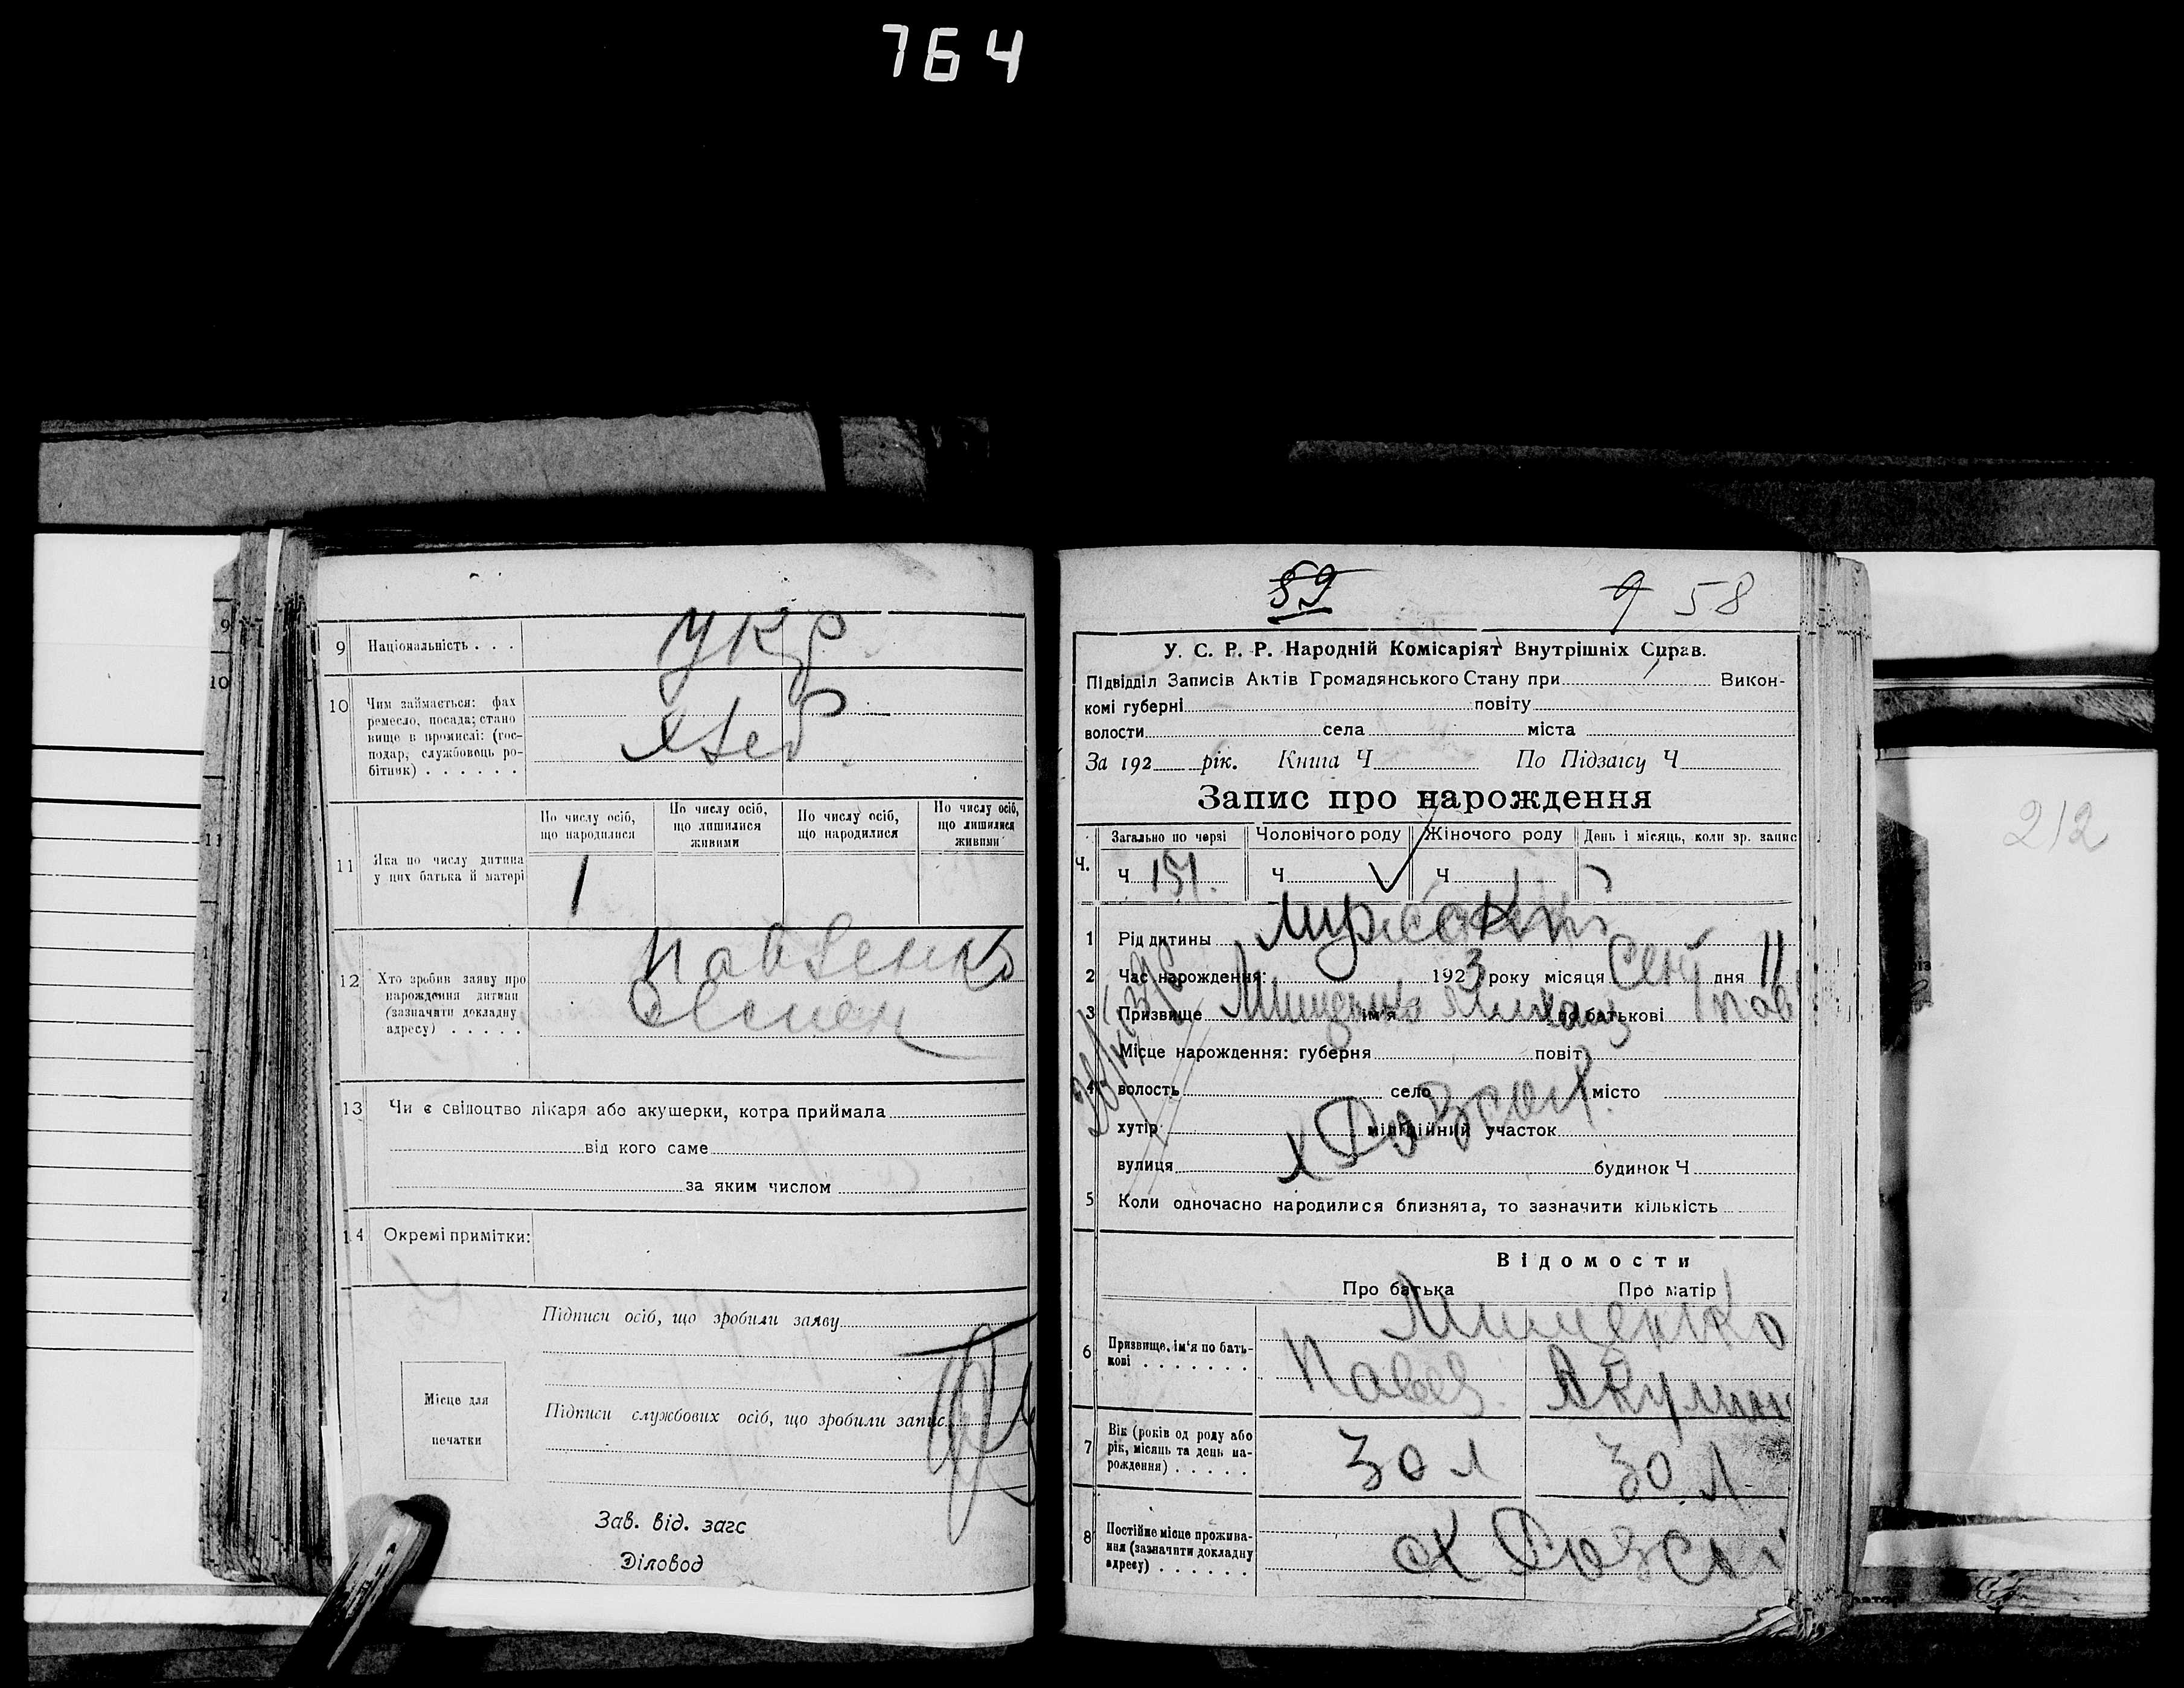 764
9 Національність . . .
Укр
10 Чим займається: фах
ремесло, посада; стано
вище в промислі: (гос-
подар, службовець ро-
бітник) . . . . . .
Хлеб
11 Яка по числу дитина
у цих батька й матері
По числу осіб,
що народилися
По числу осіб,
що лишилися
живими
По числу осіб,
що народилися
По числу осіб,
що лишилися
живими
1
12 Хто зробив заяву про
нарождення дитини
(зазначити докладну
адресу) . . . . .
13 Чи є свідоцтво лікаря або акушерки, котра приймала
від кого саме
за яким числом
14 Окремі примітки:
Підписи осіб, що зробили заяву
Місце для
печатки
Підписи службових осіб, що зробили запис
Зав. від. загс
Діловод
59
9 58
У. С. Р. Р. Народній Комісаріят Внутрішніх Справ.
Підвідділ Записів Актів Громадянського Стану при Викон-
комі губерні повіту
волости села міста
За 192 рік. Книга Ч По Підзагсу Ч
Запис про нарождення
Ч. Загально по черзі Чолонічого роду Жіночого роду День і місяць, коли зр. запис
Ч 151. Ч Ч
1 Рід дитины мужской
2 Час нарождення: 1923 року місяця Сент дня 11
3 Призвище Мищенко ім'я Михаил по батькові Пав
Місце нарождення: губерня повіт
4 волость село місто
хутір міліційний участок
вулиця будинок Ч
5 Коли одночасно народилися близнята, то зазначити кількість
Відомости
Про батька Про матір
6 Призвище, ім'я по бать-
кові . . . . . . .
Мищенко
Павел Акулин
7 Вік (років од роду або
рік, місяць та день на-
рождення) . . . . .
30 л 30 л
8 Постійне місце прожива-
ння (зазначити докладну
адресу) . . . . . .
212